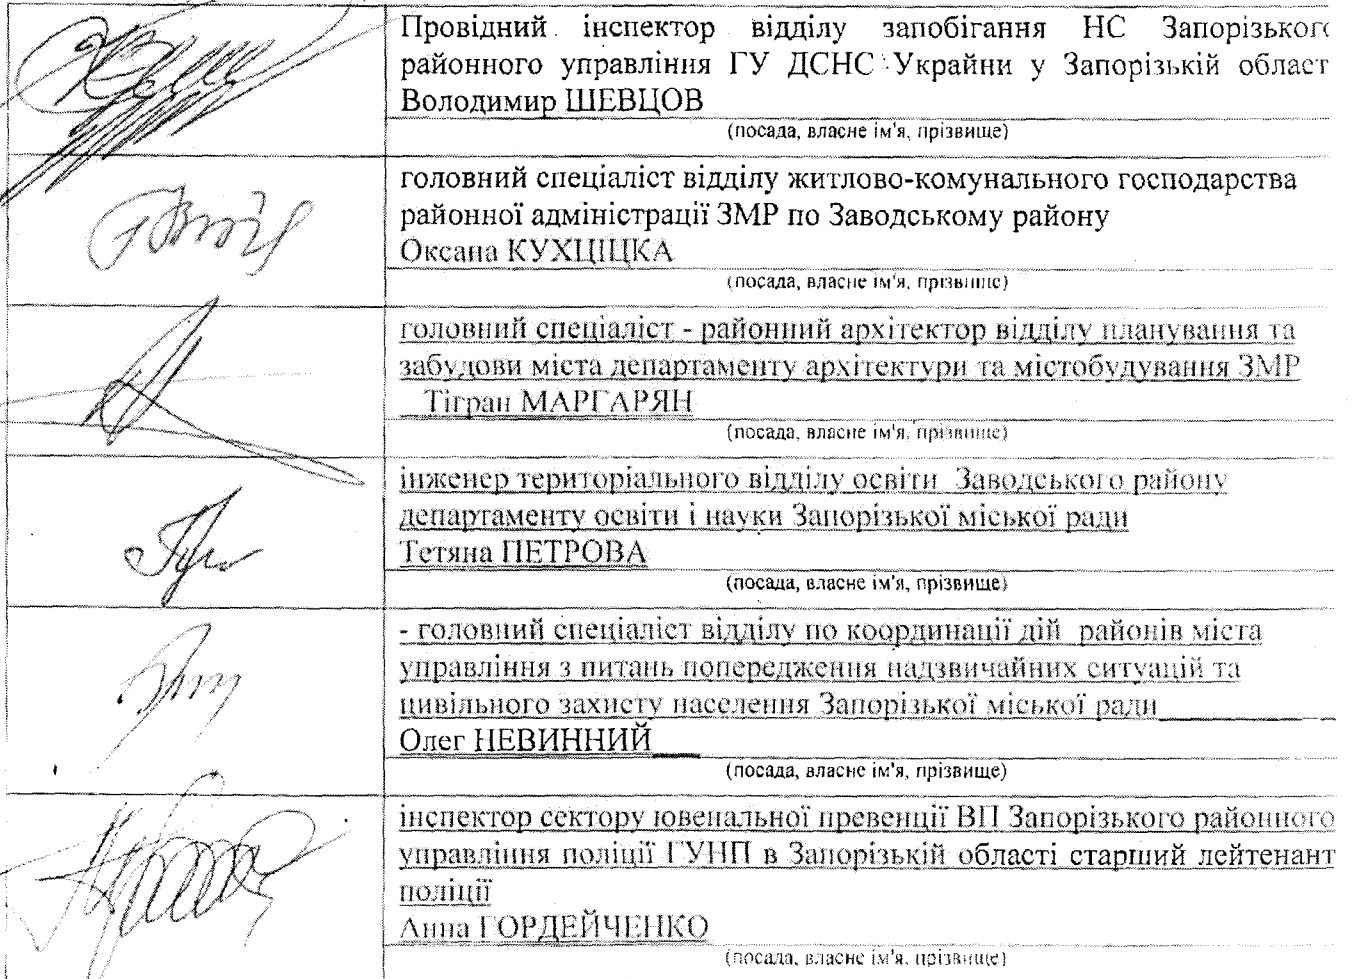 Провідний інспектор відділу запобігання НС Запорізького
районного управління ГУ ДСНС України у Запорізькій област
Володимир ШЕВЦОВ
(посада, власне ім'я, прізвище)
головний спеціаліст відділу житлово-комунального господарства
районної адміністрації ЗМР по Заводському району
Оксана КУХЦІЦКА
(посада, власне ім'я, прізвище)
головний спеціаліст - районний архітектор відділу планування та
забудови міста департаменту архітектури та містобудування ЗМР
Тігран МАРГАРЯН
(посада, власне ім'я, прізвище)
інженер територіального відділу освіти Заводського району
департаменту освіти і науки Запорізької міської ради
Тетяна ПЕТРОВА
(посада, власне ім'я, прізвище)
- головний спеціаліст відділу по координації дій районів міста
управління з питань попередження надзвичайних ситуацій та
цивільного захисту населення Запорізької міської ради
Олег НЕВИННИЙ
(посада, власне ім'я, прізвище)
інспектор сектору ювенальної превенції ВП Запорізького районного
управління поліції ГУНП в Запорізькій області старший лейтенант
поліції
Анна ГОРДЕЙЧЕНКО
(посада, власне ім'я, прізвище)